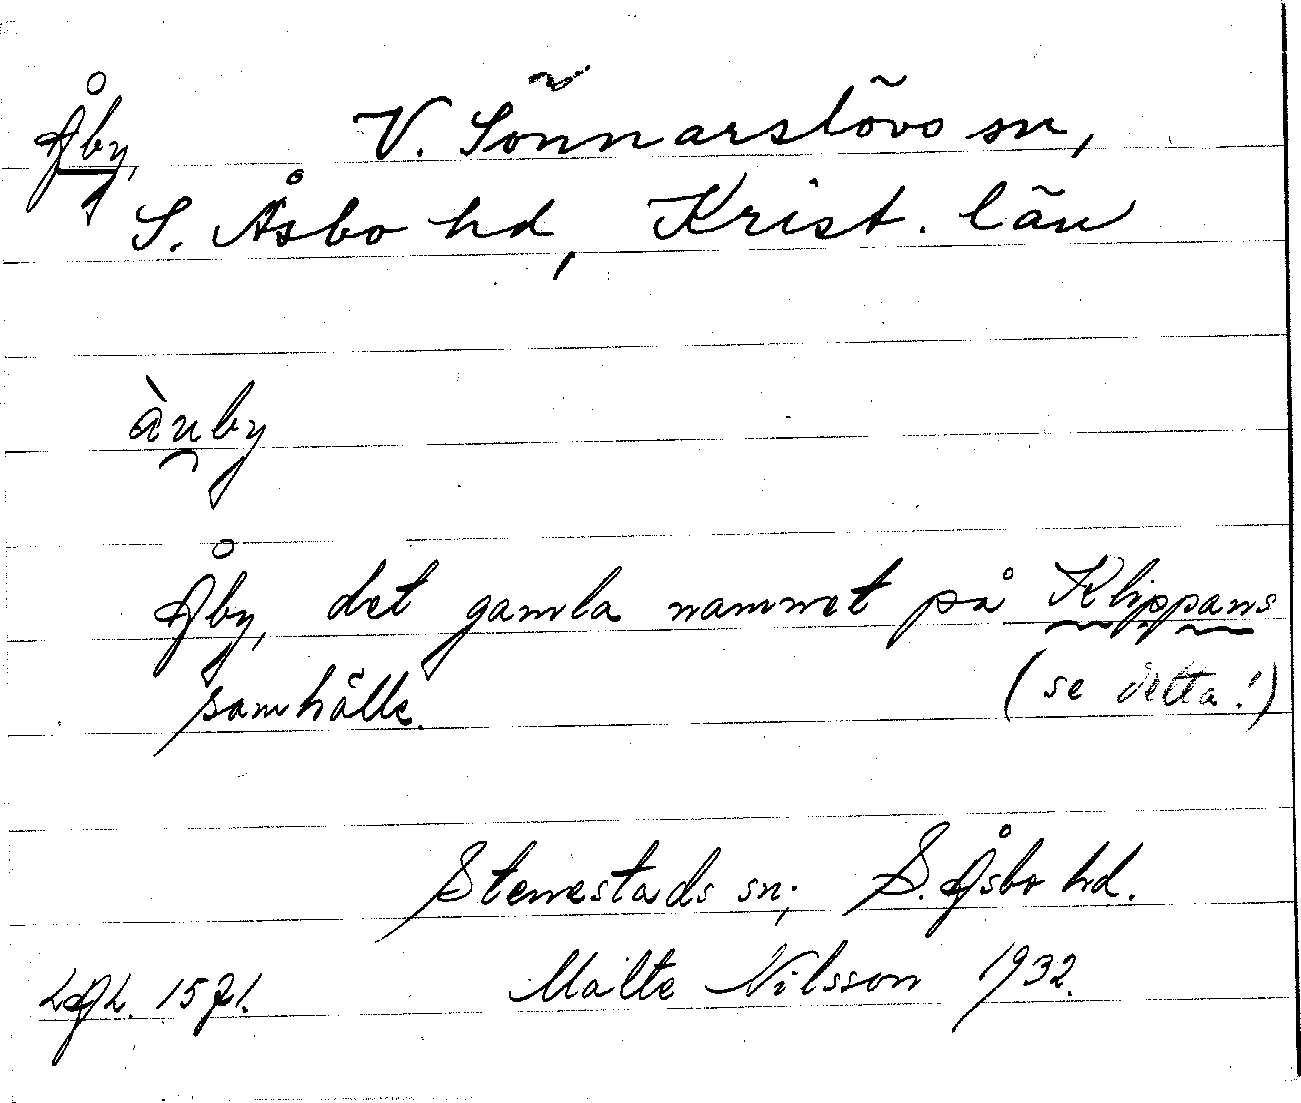 Åby, V. Sönnarslövs sn,
S. Åsbo hd, Krist. län
àu̯by
Åby, det gamla namnet på Klippans
samhälle. (se detta!)
Stenestads sn; S. Åsbo hd.
LAL. 1571. Malte Nilsson 1932.